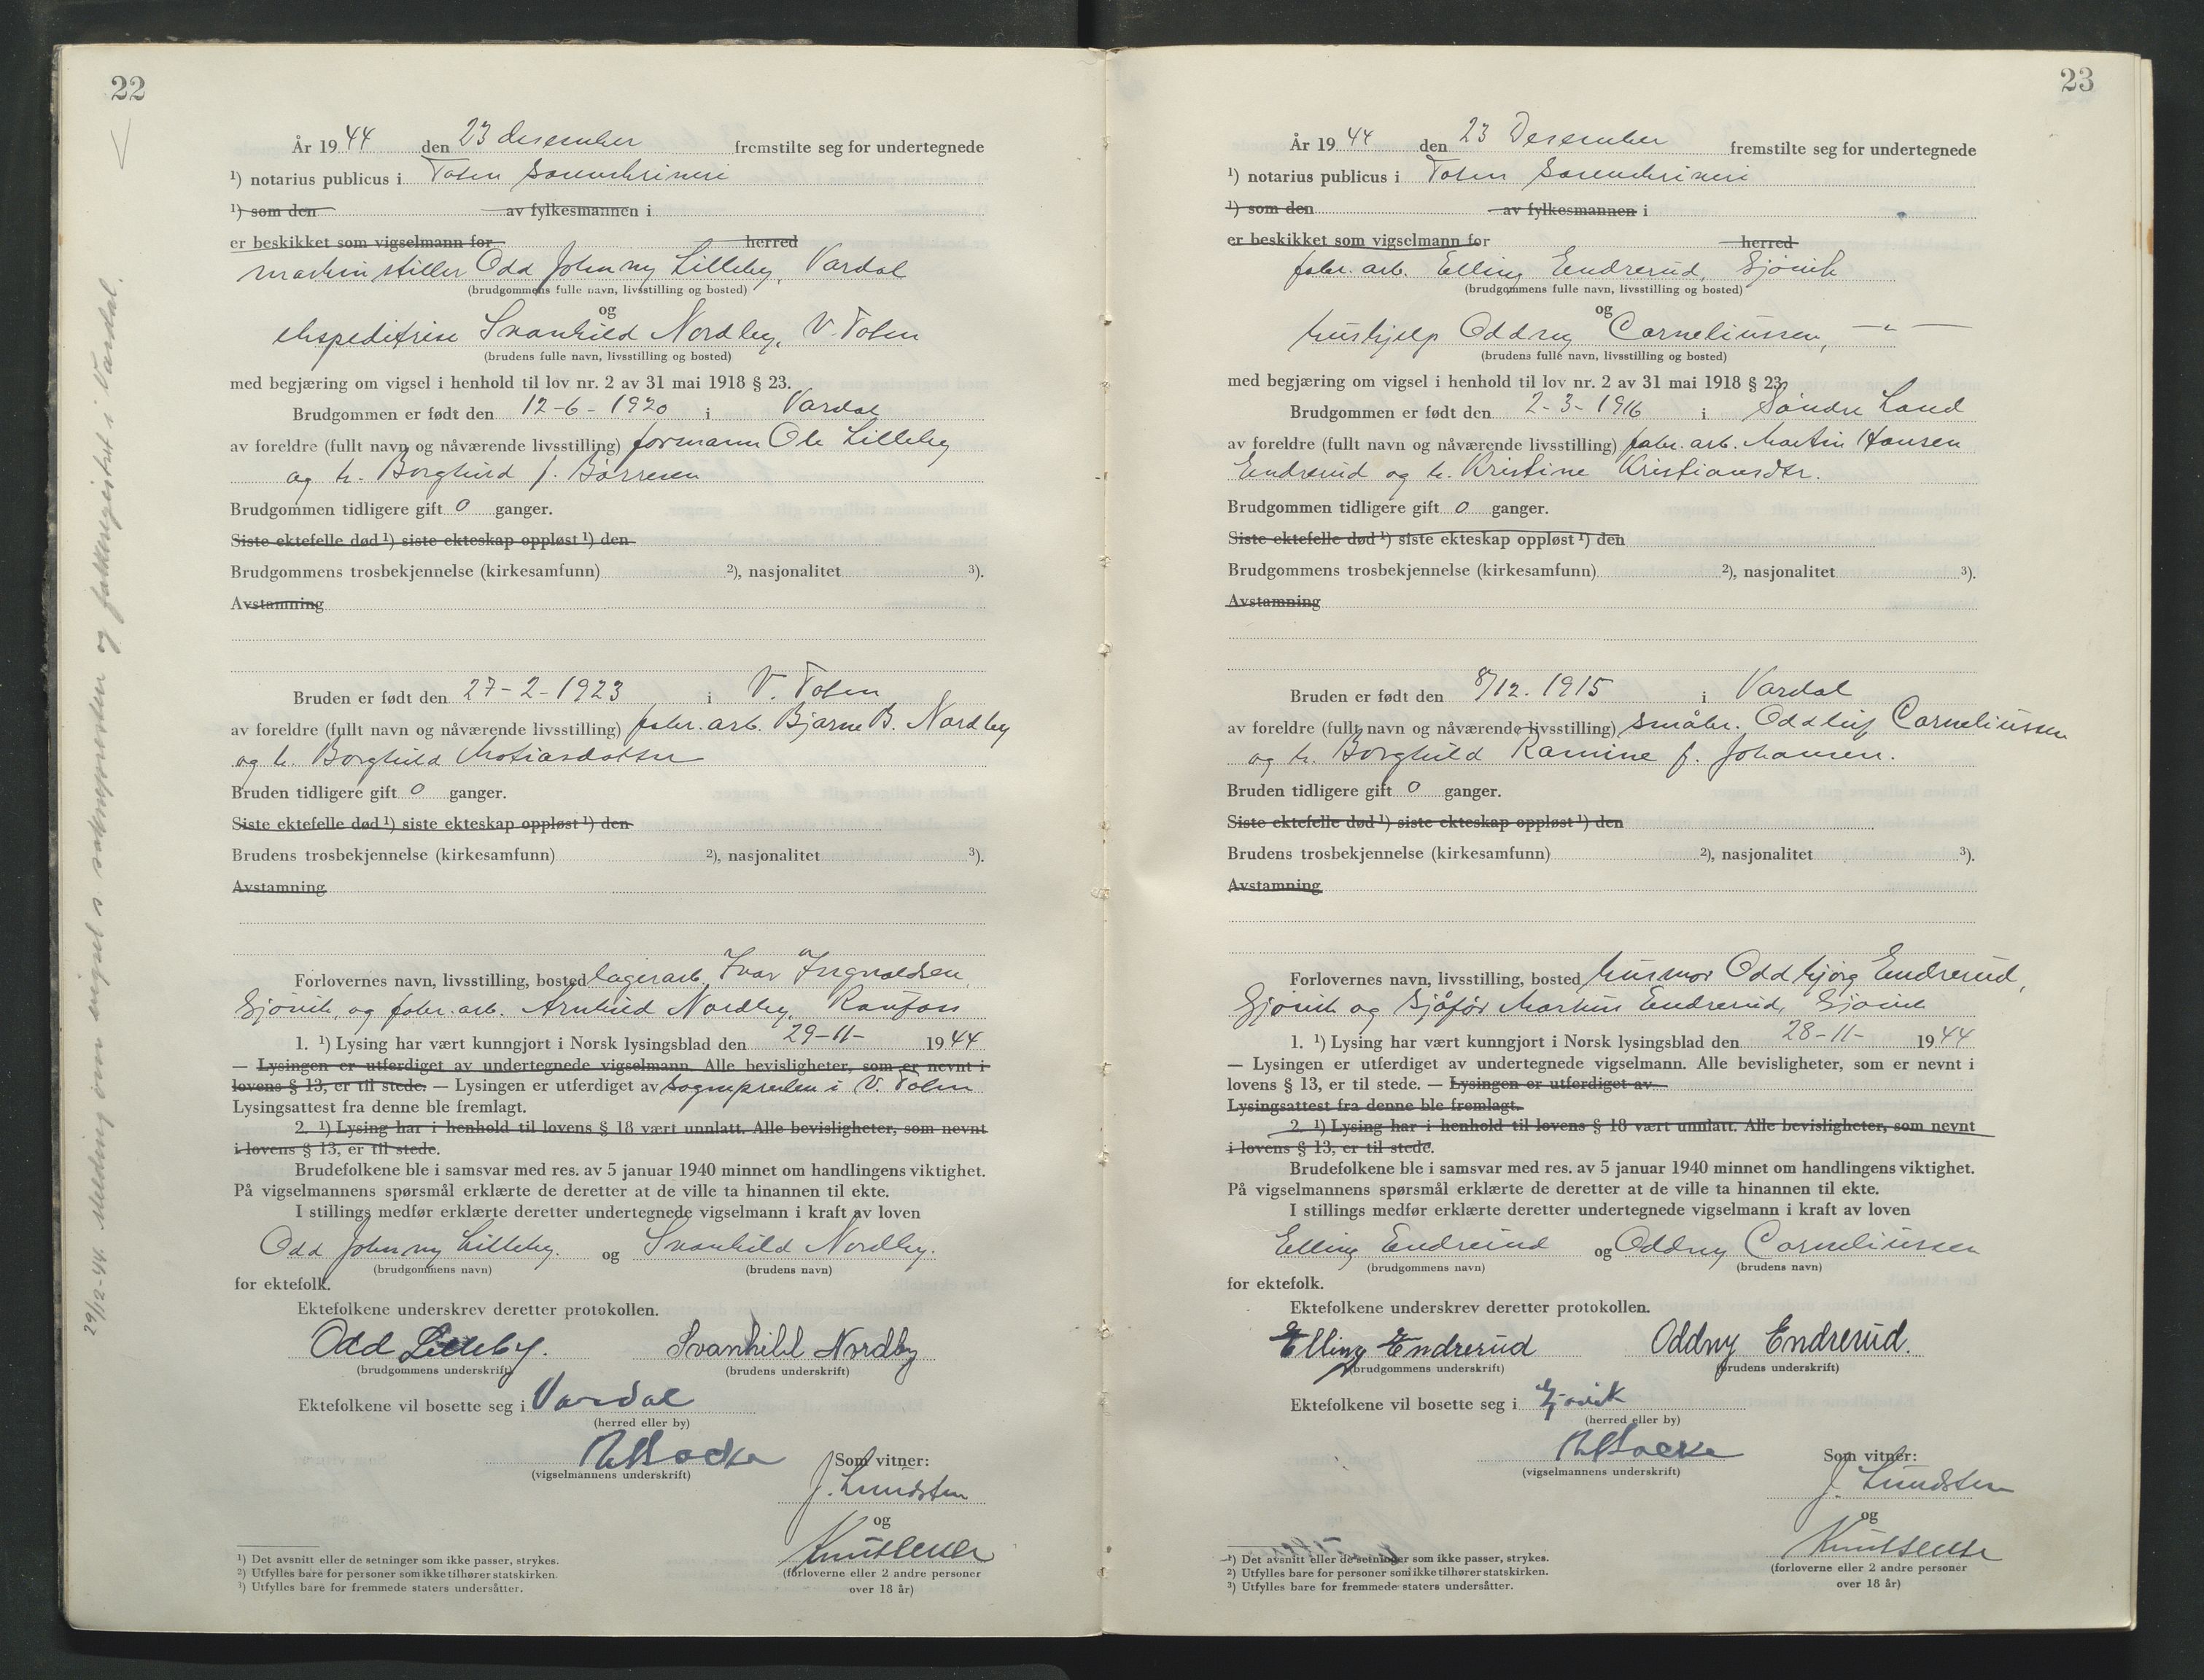 22
År 1944 den 23 desember fremstilte seg for undertegnede
¹) notarius publicus i Toten Sorenskriveri
¹) som den av fylkesmannen i
er beskikket som vigselmann for herred
maskinstiller Odd Johnny Lilleby, Vardal
(brudgommens fulle navn, livsstilling og bosted)
og
ekspeditrise Svanhild Nordby, V. Toten
(brudens fulle navn, livsstilling og bosted)
med begjæring om vigsel i henhold til lov nr. 2 av 31 mai 1918 § 23.
Brudgommen er født den 12-6-1920 i Vardal
av foreldre (fullt navn og nåværende livsstilling) formann Ole Lilleby
og h. Borghild f. Børresen
Brudgommen tidligere gift 0 ganger.
Siste ektefelle død ¹) siste ekteskap oppløst ¹) den
Brudgommens trosbekjennelse (kirkesamfunn) ²), nasjonalitet ³).
Avstamning
Bruden er født den 27-2-1923 i V. Toten
av foreldre (fullt navn og nåværende livsstilling) fabr. arb. Bjarne B. Nordby
og h. Borghild Matiasdatter
Bruden tidligere gift 0 ganger.
Siste ektefelle død ¹) siste ekteskap oppløst ¹) den
Brudens trosbekjennelse (kirkesamfunn) ²), nasjonalitet ³).
Avstamning
Forlovernes navn, livsstilling, bosted lagerarb. Ivar Ingvaldsen,
Gjøvik, og fabr. arb. Arnhild Nordby, Raufoss
1. ¹) Lysing har vært kunngjort i Norsk lysingsblad den 29-11- 1944
— Lysingen er utferdiget av undertegnede vigselmann. Alle bevisligheter, som er nevnt i
lovens § 13, er til stede. — Lysingen er utferdiget av sognepresten i V. Toten
Lysingsattest fra denne ble fremlagt.
2. ¹) Lysing har i henhold til lovens § 18 vært unnlatt. Alle bevisligheter, som nevnt
i lovens § 13, er til stede.
Brudefolkene ble i samsvar med res. av 5 januar 1940 minnet om handlingens viktighet.
På vigselmannens spørsmål erklærte de deretter at de ville ta hinannen til ekte.
I stillings medfør erklærte deretter undertegnede vigselmann i kraft av loven
Odd Johnny Lilleby. og Svanhild Nordby.
(brudgommens navn) (brudens navn)
for ektefolk.
Ektefolkene underskrev deretter protokollen.
Odd Lilleby. Svanhild Nordby
(brudgommens underskrift) (brudens underskrift)
Ektefolkene vil bosette seg i Vardal
(herred eller by)
Som vitner:
(vigselmannens underskrift)
J. Lundsten
og
(forloverne eller 2 andre personer
over 18 år)
¹) Det avsnitt eller de setninger som ikke passer, strykes.
²) Utfylles bare for personer som ikke tilhører statskirken.
³) Utfylles bare for fremmede staters undersåtter.
29/12-44 Melding om vigsel s. soknepresten og folkeregistret i Vardal.
23
År 1944 den 23 Desember fremstilte seg for undertegnede
¹) notarius publicus i Toten Sorenskriveri
¹) som den av fylkesmannen i
er beskikket som vigselmann for herred
fabr. arb. Elling Endrerud, Gjøvik
(brudgommens fulle navn, livsstilling og bosted)
og
hushjelp Oddny Corneliussen, — " —
(brudens fulle navn, livsstilling og bosted)
med begjæring om vigsel i henhold til lov nr. 2 av 31 mai 1918 § 23.
Brudgommen er født den 2-3-1916 i Søndre Land
av foreldre (fullt navn og nåværende livsstilling) fabr. arb. Martin Hansen
Endrerud og h. Kristine Kristiansdtr.
Brudgommen tidligere gift 0 ganger.
Siste ektefelle død ¹) siste ekteskap oppløst ¹) den
Brudgommens trosbekjennelse (kirkesamfunn) ²), nasjonalitet ³).
Avstamning
Bruden er født den 8/12. 1915 i Vardal
av foreldre (fullt navn og nåværende livsstilling) småbr. Oddleif Corneliussen
og h. Borghild Ramine f. Johansen.
Bruden tidligere gift 0 ganger.
Siste ektefelle død ¹) siste ekteskap oppløst ¹) den
Brudens trosbekjennelse (kirkesamfunn) ²), nasjonalitet ³).
Avstamning
Forlovernes navn, livsstilling, bosted husmor Oddbjørg Endrerud,
Gjøvik og sjåfør Markus Endrerud, Gjøvik
1. ¹) Lysing har vært kunngjort i Norsk lysingsblad den 28-11- 1944
— Lysingen er utferdiget av undertegnede vigselmann. Alle bevisligheter, som er nevnt i
lovens § 13, er til stede. — Lysingen er utferdiget av
Lysingsattest fra denne ble fremlagt.
2. ¹) Lysing har i henhold til lovens § 18 vært unnlatt. Alle bevisligheter, som nevnt
i lovens § 13, er til stede.
Brudefolkene ble i samsvar med res. av 5 januar 1940 minnet om handlingens viktighet.
På vigselmannens spørsmål erklærte de deretter at de ville ta hinannen til ekte.
I stillings medfør erklærte deretter undertegnede vigselmann i kraft av loven
Elling Endrerud og Oddny Corneliussen
(brudgommens navn) (brudens navn)
for ektefolk.
Ektefolkene underskrev deretter protokollen.
Elling Endrerud Oddny Endrerud.
(brudgommens underskrift) (brudens underskrift)
Ektefolkene vil bosette seg i Gjøvik
(herred eller by)
Som vitner:
(vigselmannens underskrift)
J. Lundsten
og
(forloverne eller 2 andre personer
over 18 år)
¹) Det avsnitt eller de setninger som ikke passer, strykes.
²) Utfylles bare for personer som ikke tilhører statskirken.
³) Utfylles bare for fremmede staters undersåtter.